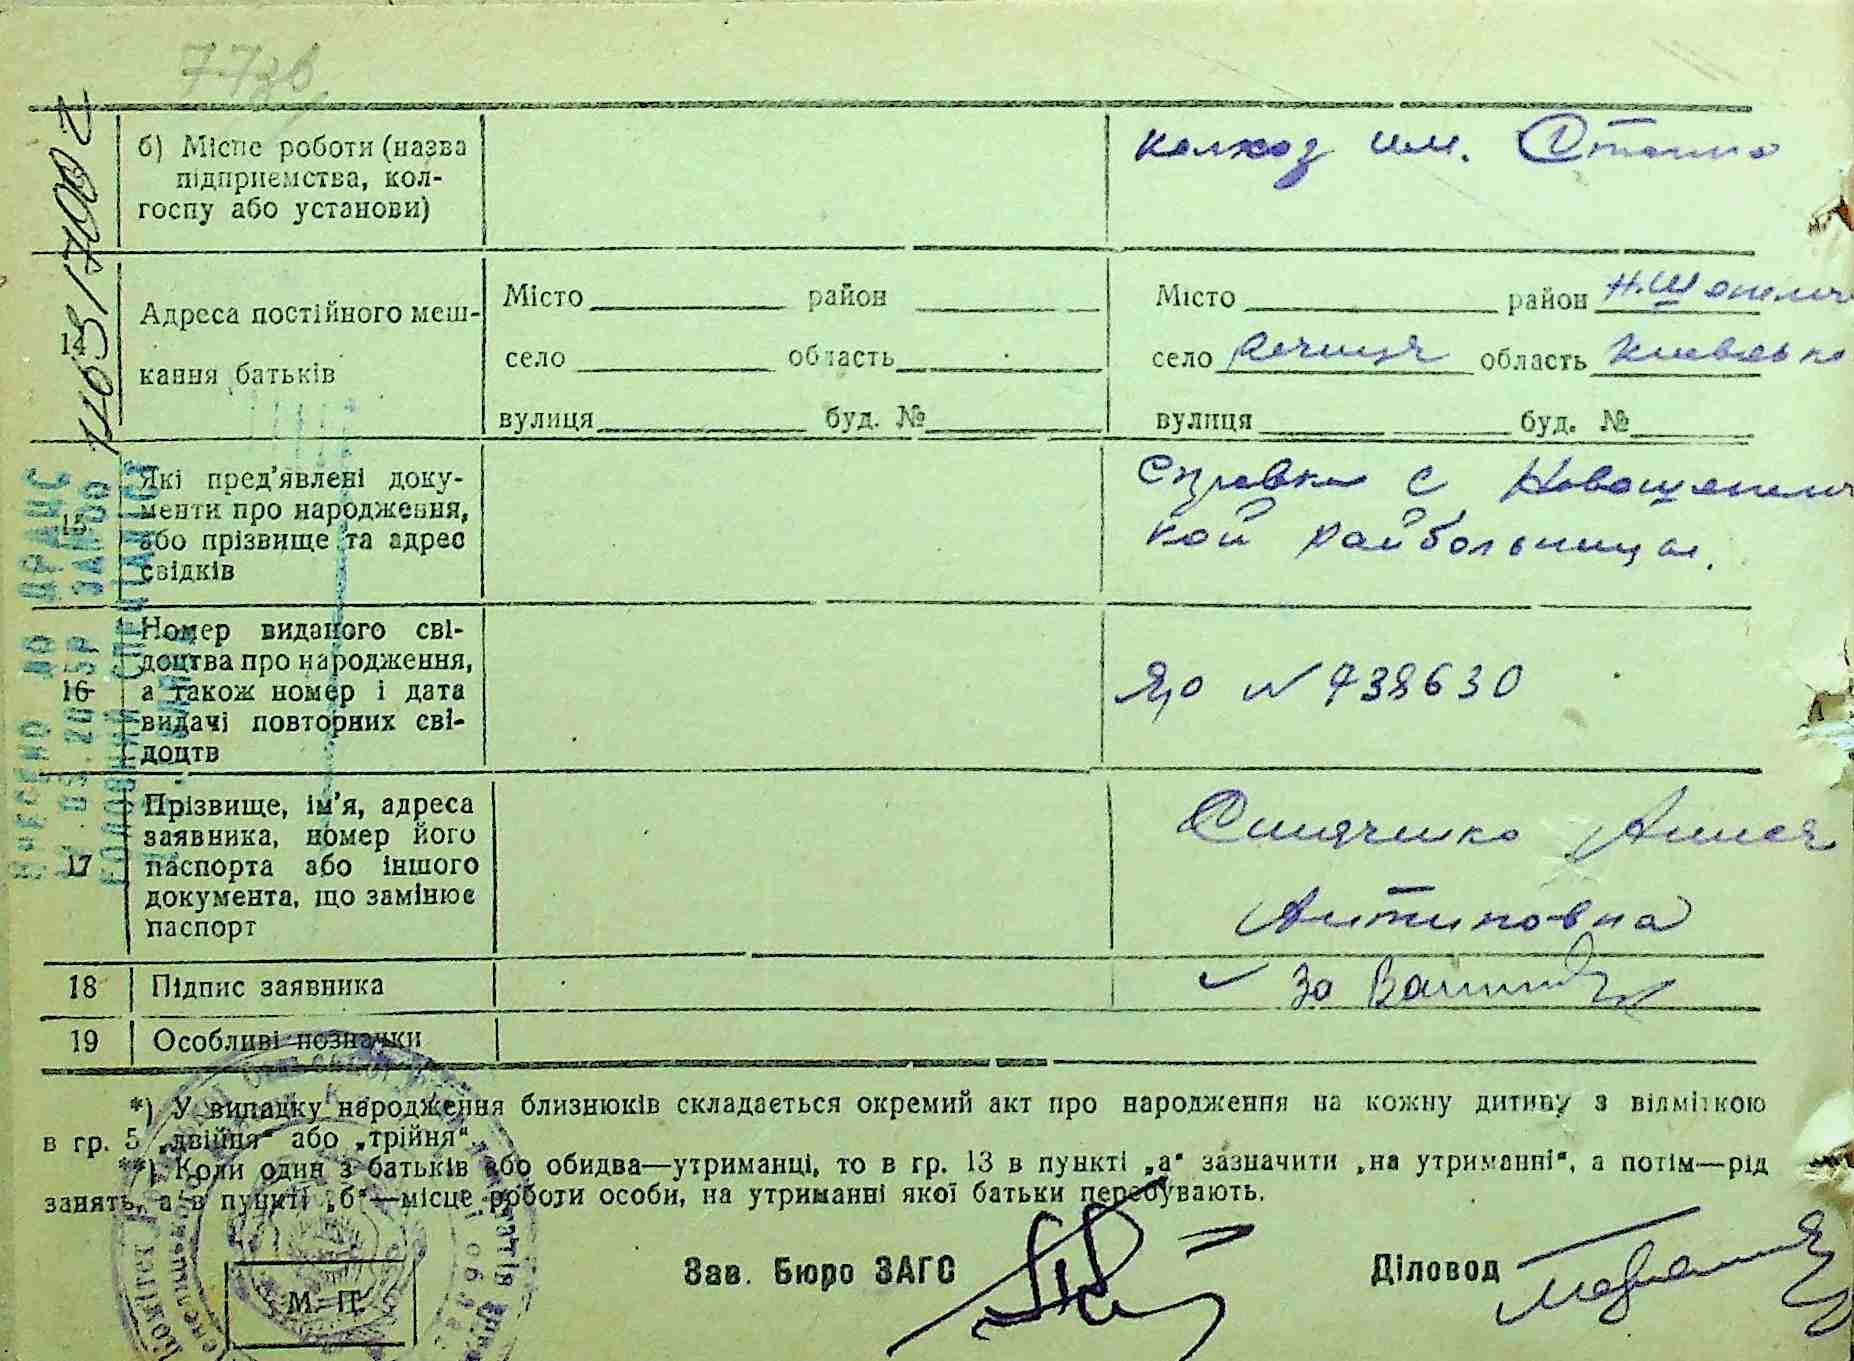 773в
б) Місце роботи (назва
підприємства, кол-
госпу або установи)
колхоз им. Сталина
14
Адреса постійного меш-
кання батьків
Місто район
село область
вулиця буд. №
Місто район Н.Шепелич
село Речица область Киевско
вулиця буд. №
15
Які пред'явлені доку-
менти про народження,
або прізвище та адрес
свідків
Справка с Новошепелич
кой райбольницы.
16
Номер виданого сві-
доцтва про народження,
а також номер і дата
видачі повторних сві-
доцтв
N 738630
17
Прізвище, ім'я, адреса
заявника, номер його
паспорта або іншого
документа, що замінює
паспорт
Антиповна
18 Підпис заявника
за
19 Особливі позначки
*) У випадку народження близнюків складається окремий акт про народження на кожну дитину з відміткою
в гр. 5 „двійня“ або „трійня“.
**) Коли один з батьків або обидва—утриманці, то в гр. 13 в пункті „а“ зазначити „на утриманні“, а потім—рід
занять, а в пункті „б“—місце роботи особи, на утриманні якої батьки перебувають.
Зав. Бюро ЗАГС
Діловод
М. П.
ВНЕСЕНО ДО ДРАЦС
ГОЛОВНИЙ СПЕЦІАЛІСТ